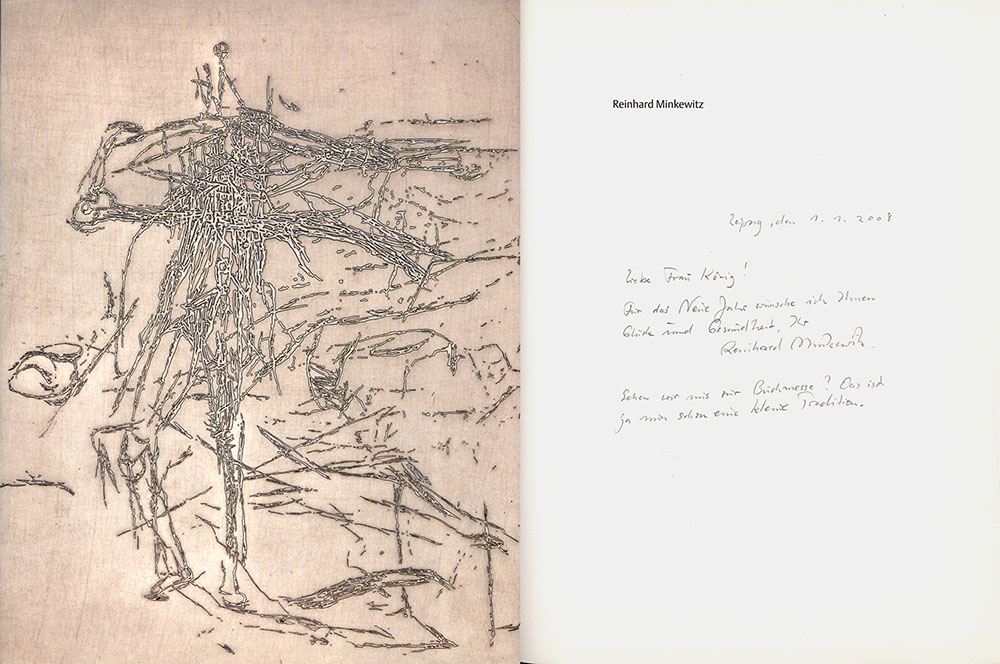 Reinhard Minkewitz
Leipzig, den 1.1.2008
Liebe Frau König!
Für das Neue Jahr wünsche ich Ihnen
Glück und Gesundheit, Ihr
Reinhard Minkewitz.
Sehen wir uns zur Buchmesse? Das ist
ja nun schon eine kleine Tradition.